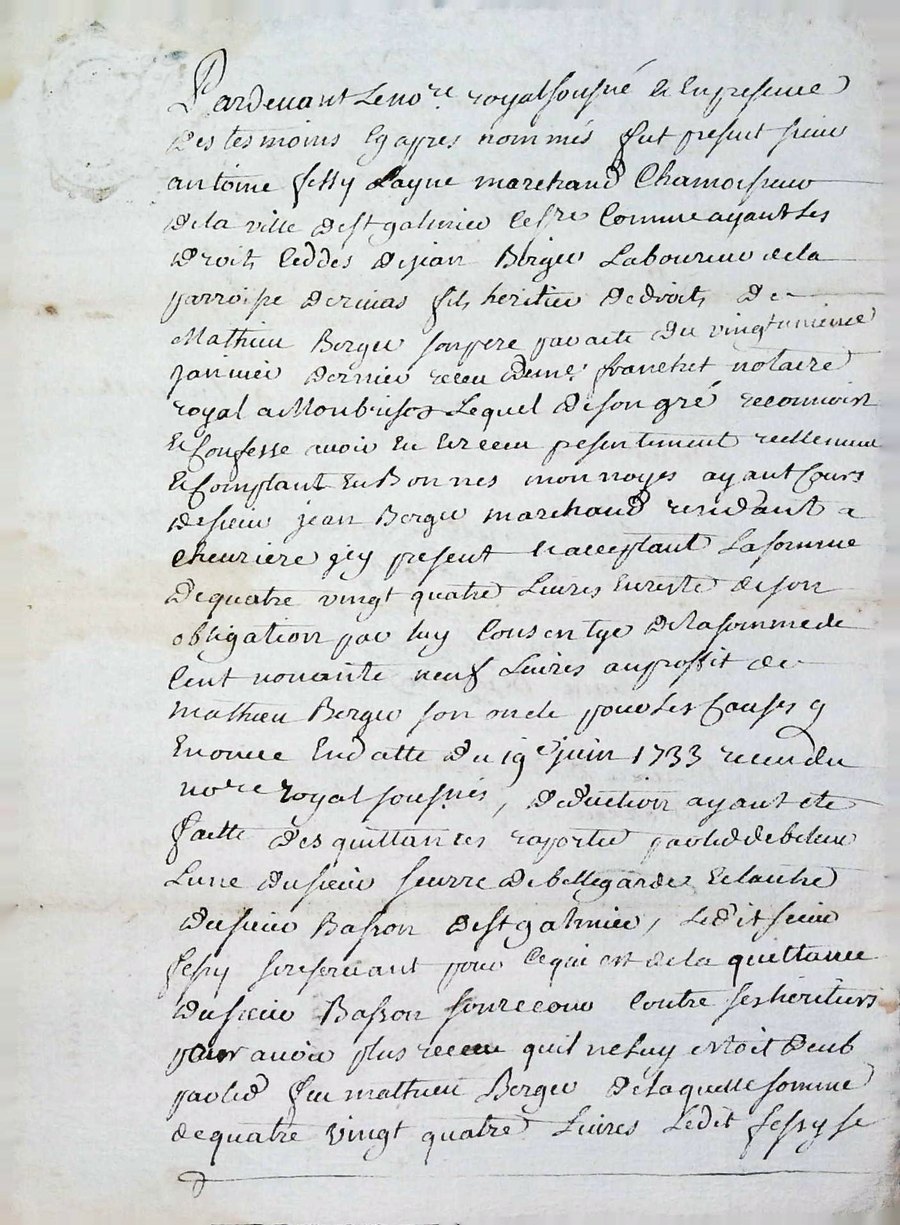 Pardevant Le no.re royal sousiné & En presence
Des tesmoins Cy appres nommés fut present sieur
antoine fessy Layne marchand Chamoiseur
De la ville de st galmier Comme ayant Les
Droits Ceddes de jean Berger Laboureur de la
parroisse de rivas fils heritier De droits De
Mathieu Berger son pere par acte Du vingtunieme
janvier Dernier receu De me franchet notaire
royal a Monbrison Lequel de son gré reconnoist
Et Confesse avoir Eu Et receu presentement reellement
Et Comptant En Bonnes monnoyes ayant Cours
de sieur jean Berger marchand residant a
Chevriere icy present Et acceptant La somme
De quatre vingt quatre Livres En reste de son
obligation par luy Consentye De la somme de
Cent nonante neuf Livres au proffit de
mathieu Berger son oncle pour Les Causes y
Enoncé En datte Du 19e juin 1733 receu du
no.re royal sousinés, Deduction ayant ete
faitte Des quittances raporté par led debiteur
Lune Du sieur seurre De bellegarde Et lautre
Du sieur Basson De st galmier, Le dit sieur
fessy se reservant pour Ce qui est de la quittance
Du sieur Basson son recour Contre ses heritiers
pour avoir plus receu quil ne luy estoit Deub
par led feu mathieu Berger De la quelle somme
de quatre vingt quatre Livres Le dit fessy se